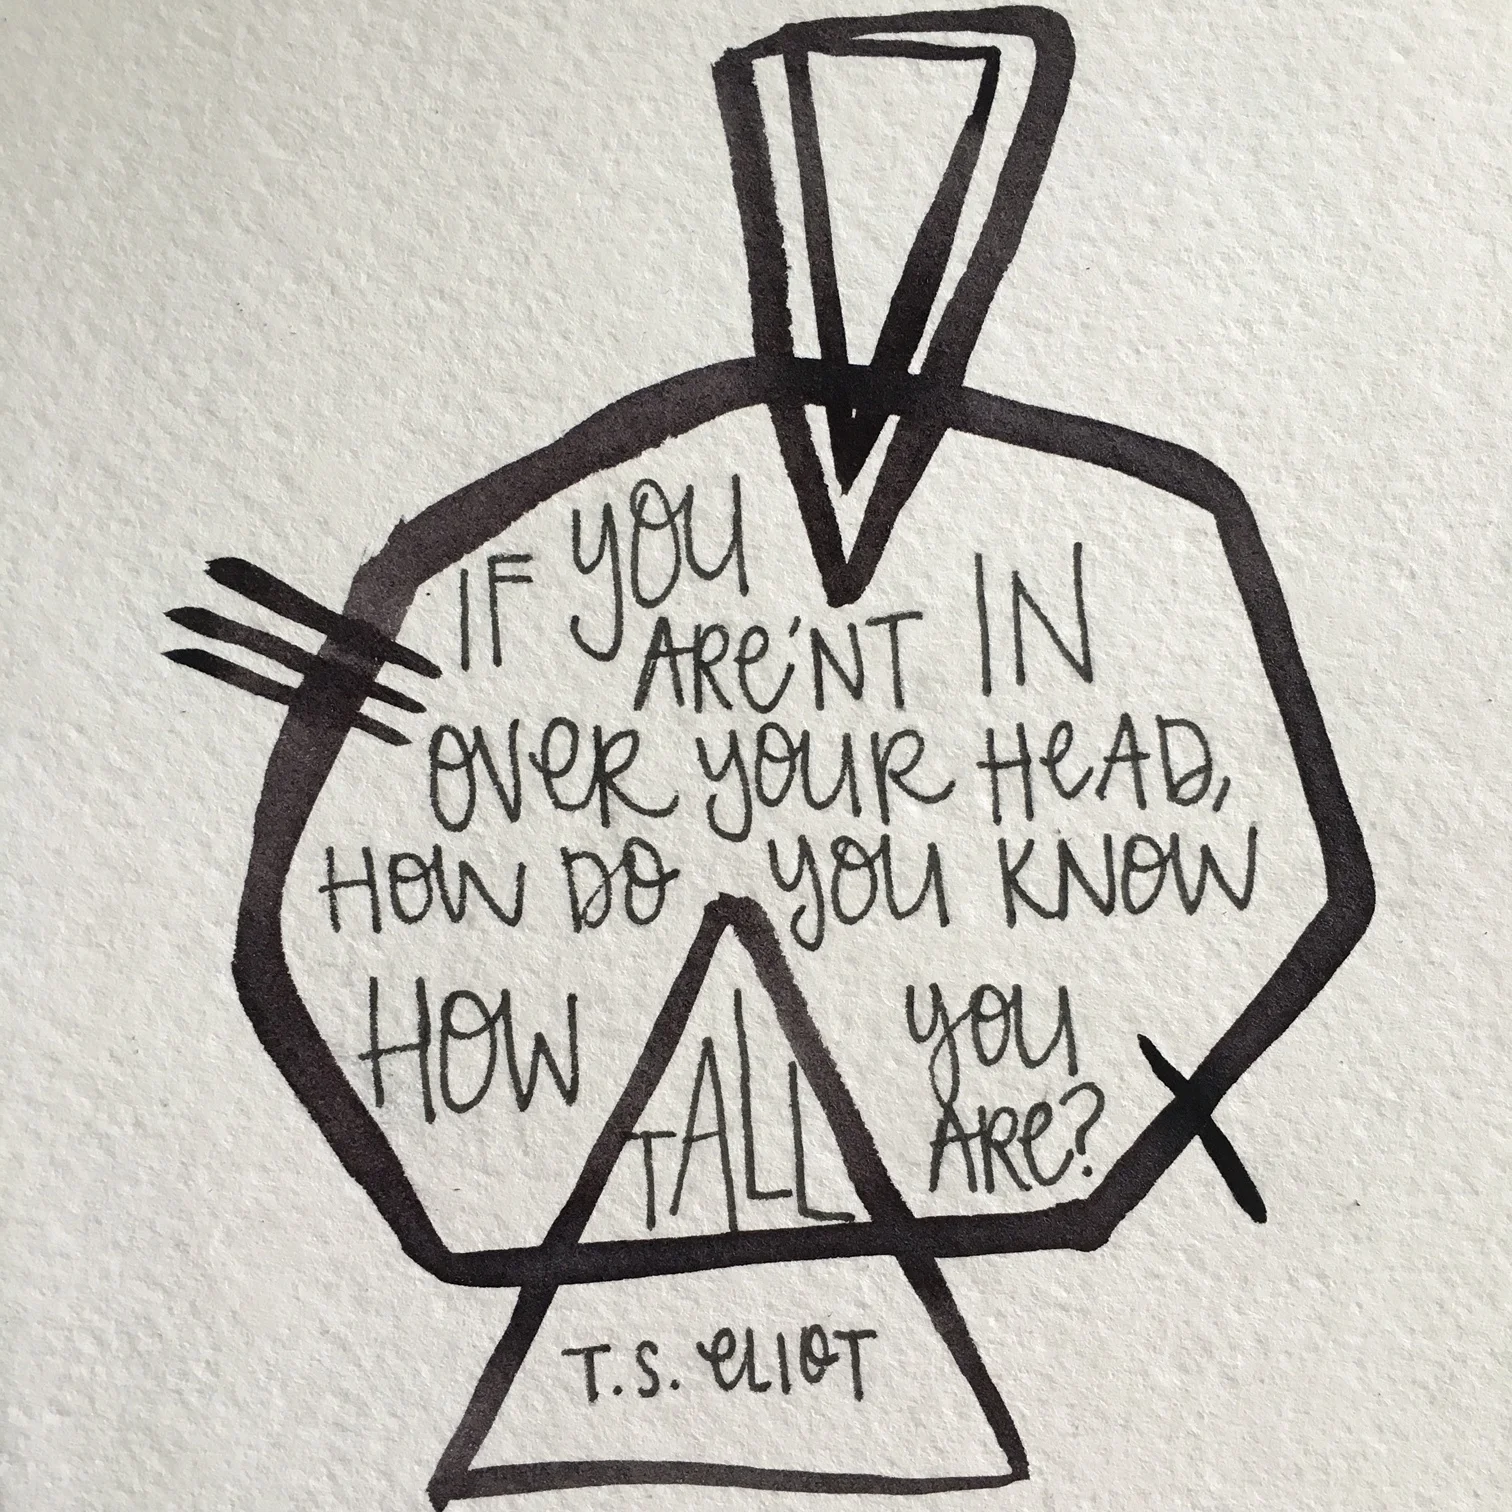 IF YOU
ARE'NT IN
OVER YOUR HEAD,
HOW DO YOU KNOW
HOW TALL YOU
ARE?
T.S. ELIOT